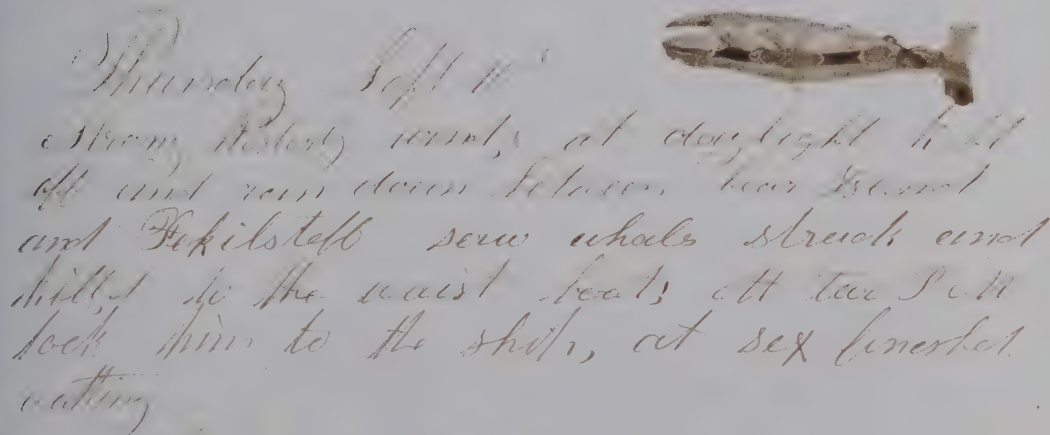 Thursday Sept 11th
strong Westerly winds, at daylight kept
off and run down between bear Island
and Fekilsteff sew whals struck and
killed to the waist boats att tw P M
took him to the ship, at sex fineshed
cutting